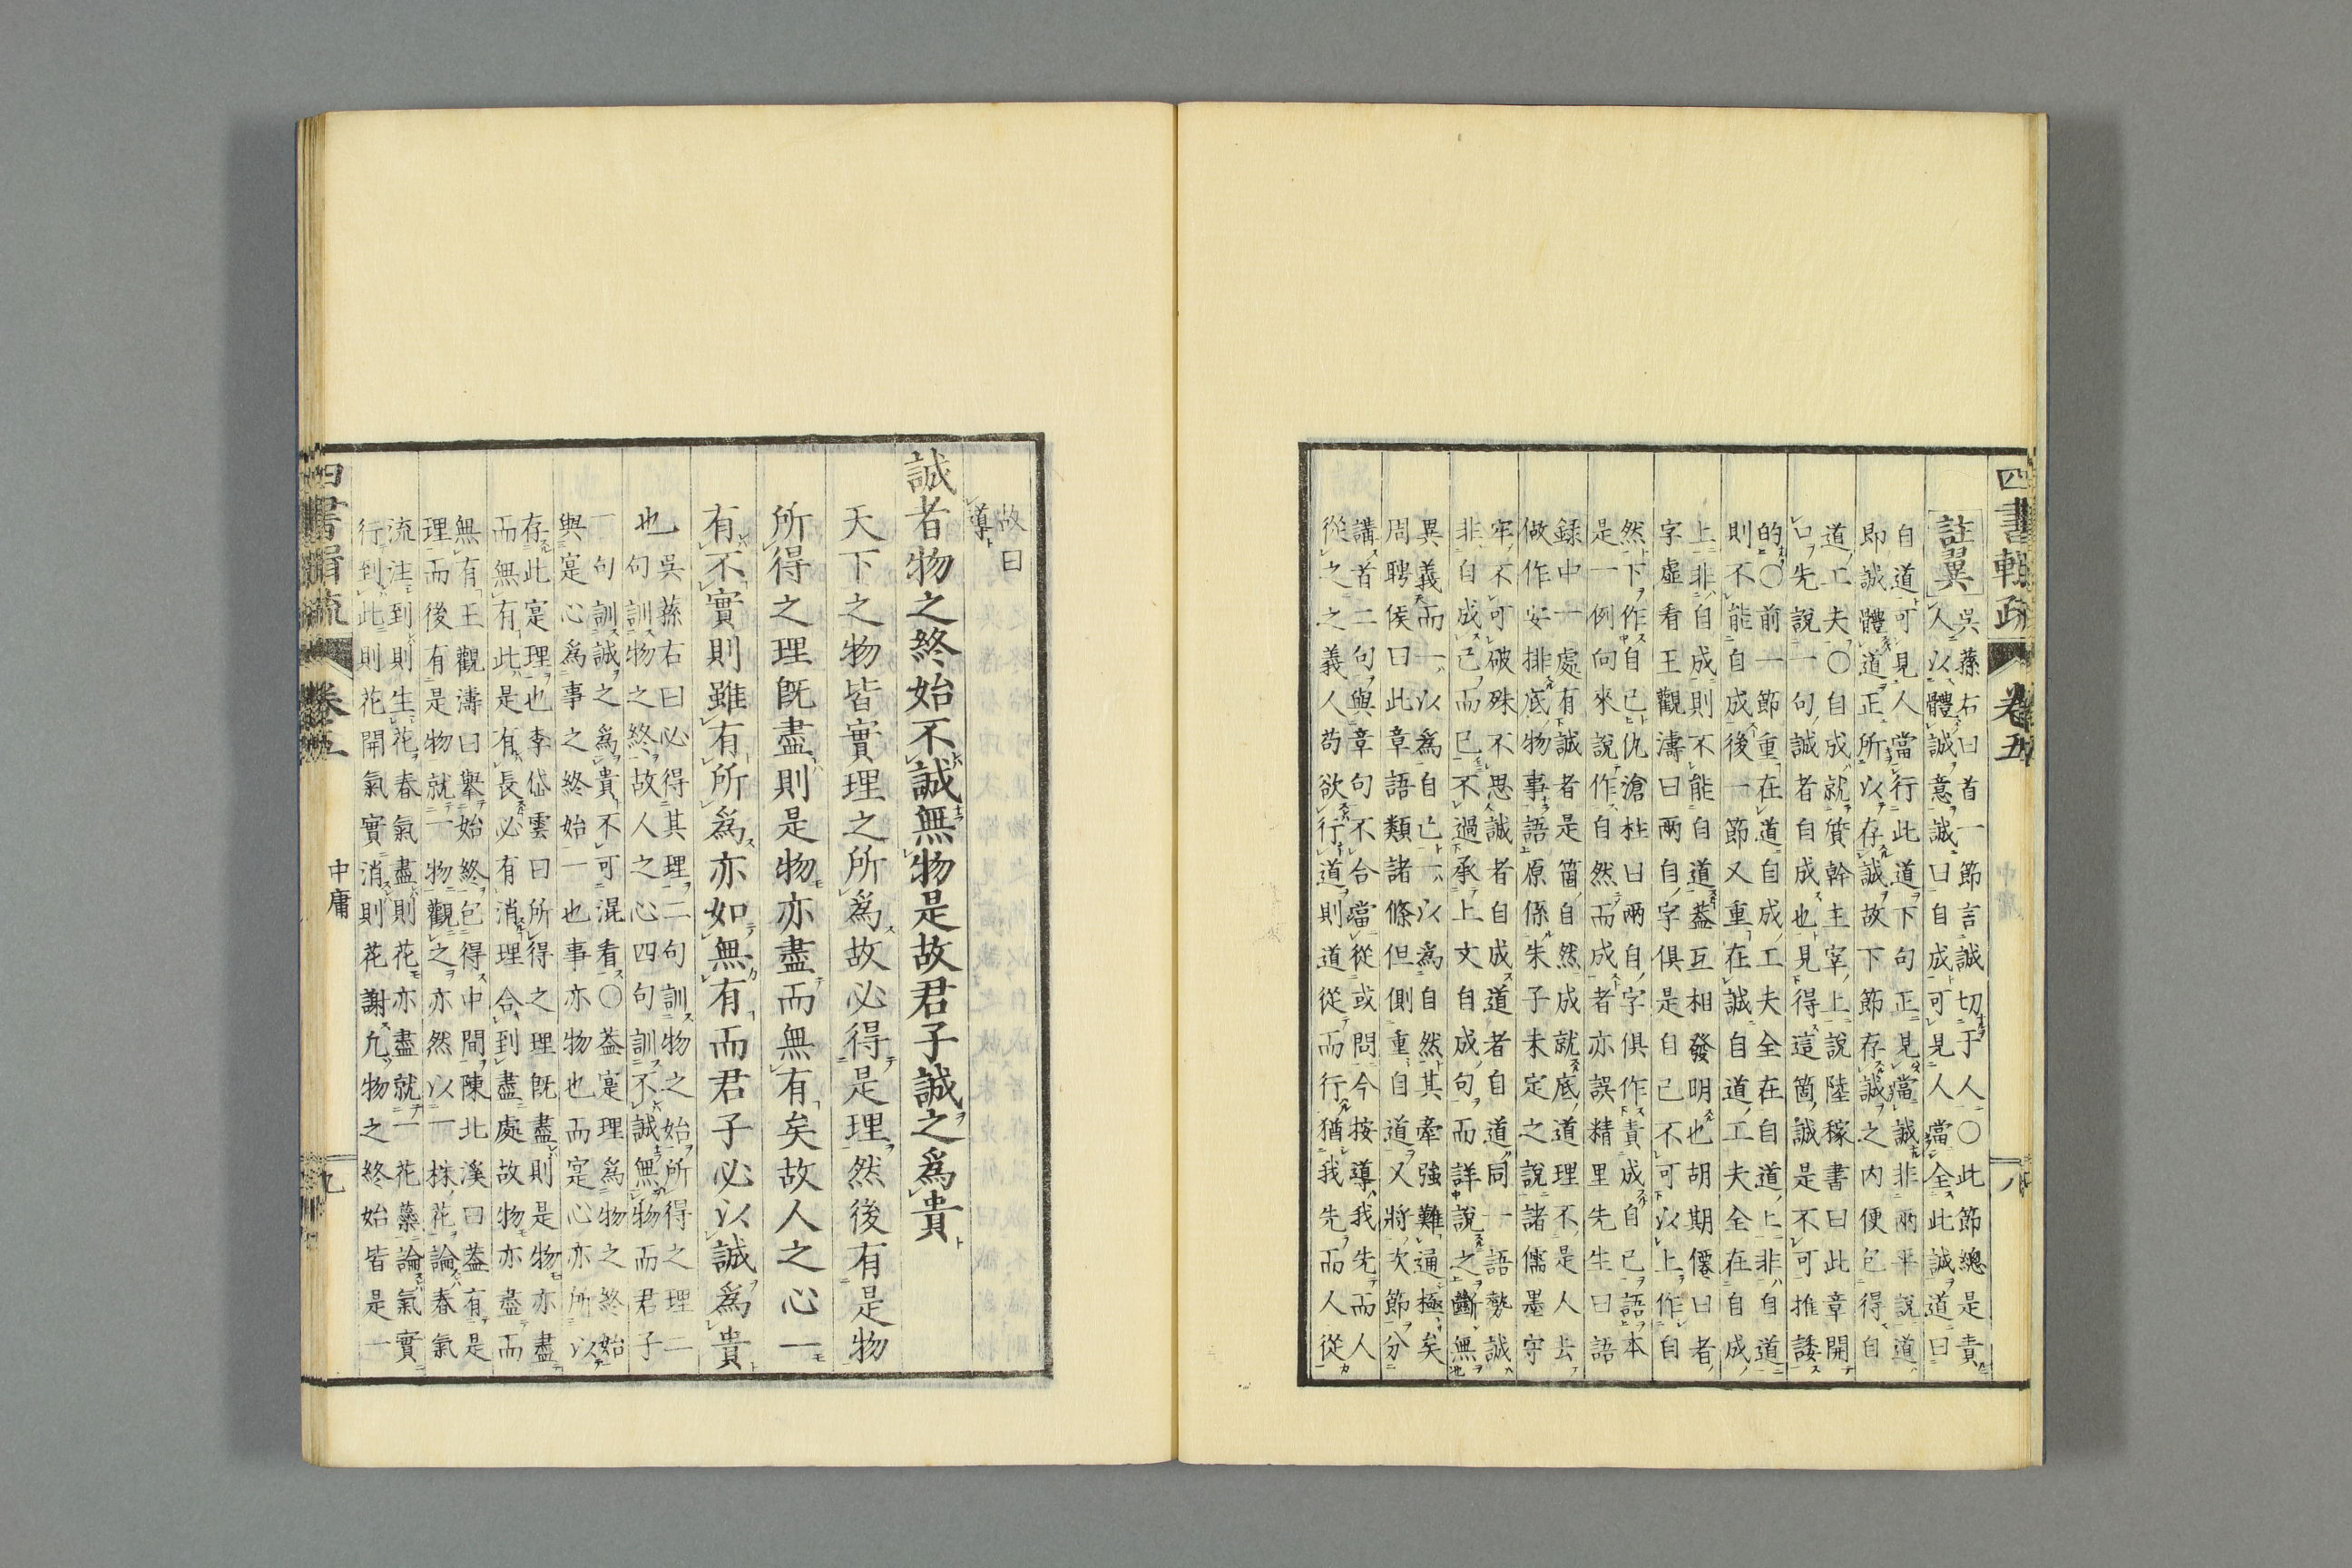 四書輯疏 卷五 八
註翼
吳蓀右曰首一節言誠切于人〇此節總是責
人以體誠意誠曰自成可見人當全此誠道曰
自道可見人當行此道下句正見當誠非兩平說道
即誠體道正所以存誠故下節存誠之內便包得自
道工夫〇自成就質幹主宰上說陸稼書曰此章開
口先說一句誠者自成也見得這箇誠是不可推諉
的〇前一節重在道自成工夫全在自道上非自道
則不能自成後一節又重在誠自道工夫全在自成
上非自成則不能自道蓋互相發明也胡期僊曰者
字虛看王觀濤曰兩自字俱是自己不可以上作自
然下作自己仇滄柱曰兩自字俱作責成自己語本
是一例向來說作自然而成者亦誤精里先生曰語
錄中一處有誠者是箇自然成就底道理不是人去
做作安排底物事語原係朱子未定之說諸儒墨守
牢不可破殊不思誠者自成道者自道同一語勢誠
非自成己而已不過承上文自成句而詳說之斷無
異義而一以為自己一以為自然其牽強難通極矣
周聘侯曰此章語類諸條但側重自道又將次節分
講首二句與章句不合當從或問今按導我先而人
從之之義人苟欲行道則道從而行猶我先而人從
故曰
導
誠者物之終始不誠無物是故君子誠之為貴
天下之物皆實理之所為故必得是理然後有是物
所得之理既盡則是物亦盡而無有矣故人之心一
有不實則雖有所為亦如無有而君子必以誠為貴
也
吳蓀右曰必得其理二句訓物之始所得之理二
句訓物之終故人之心四句訓不誠無物而君子
一句訓誠之為貴不可混看〇蓋寔理為物之終始
與寔心為事之終始一也事亦物也而寔心亦所以
存此寔理也李岱雲曰所得之理既盡則是物亦盡
而無有此是有長必有消理合到盡處故物亦盡而
無有王觀濤曰舉始終包得中間陳北溪曰蓋有是
理而後有是物就一物觀之亦然以一株花論春氣
流注到則生花春氣盡則花亦盡就一花蘂論氣實
行到此則花開氣實消則花謝凡物之終始皆是一
四書輯疏 卷五 中庸 九